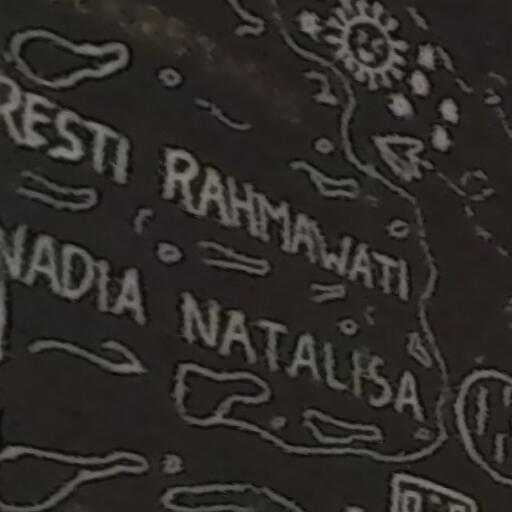 RESTI RAHMAWATI
NADIA NATALISA